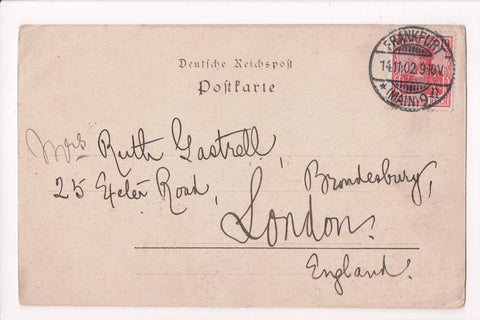 Deutsche Reichspost
Postkarte
FRANKFURT
14.11.02.9-10V.
* (MAIN) 9
Ruth Gastrell,
25 Exeter Road, Brondesbury,
London.
England.